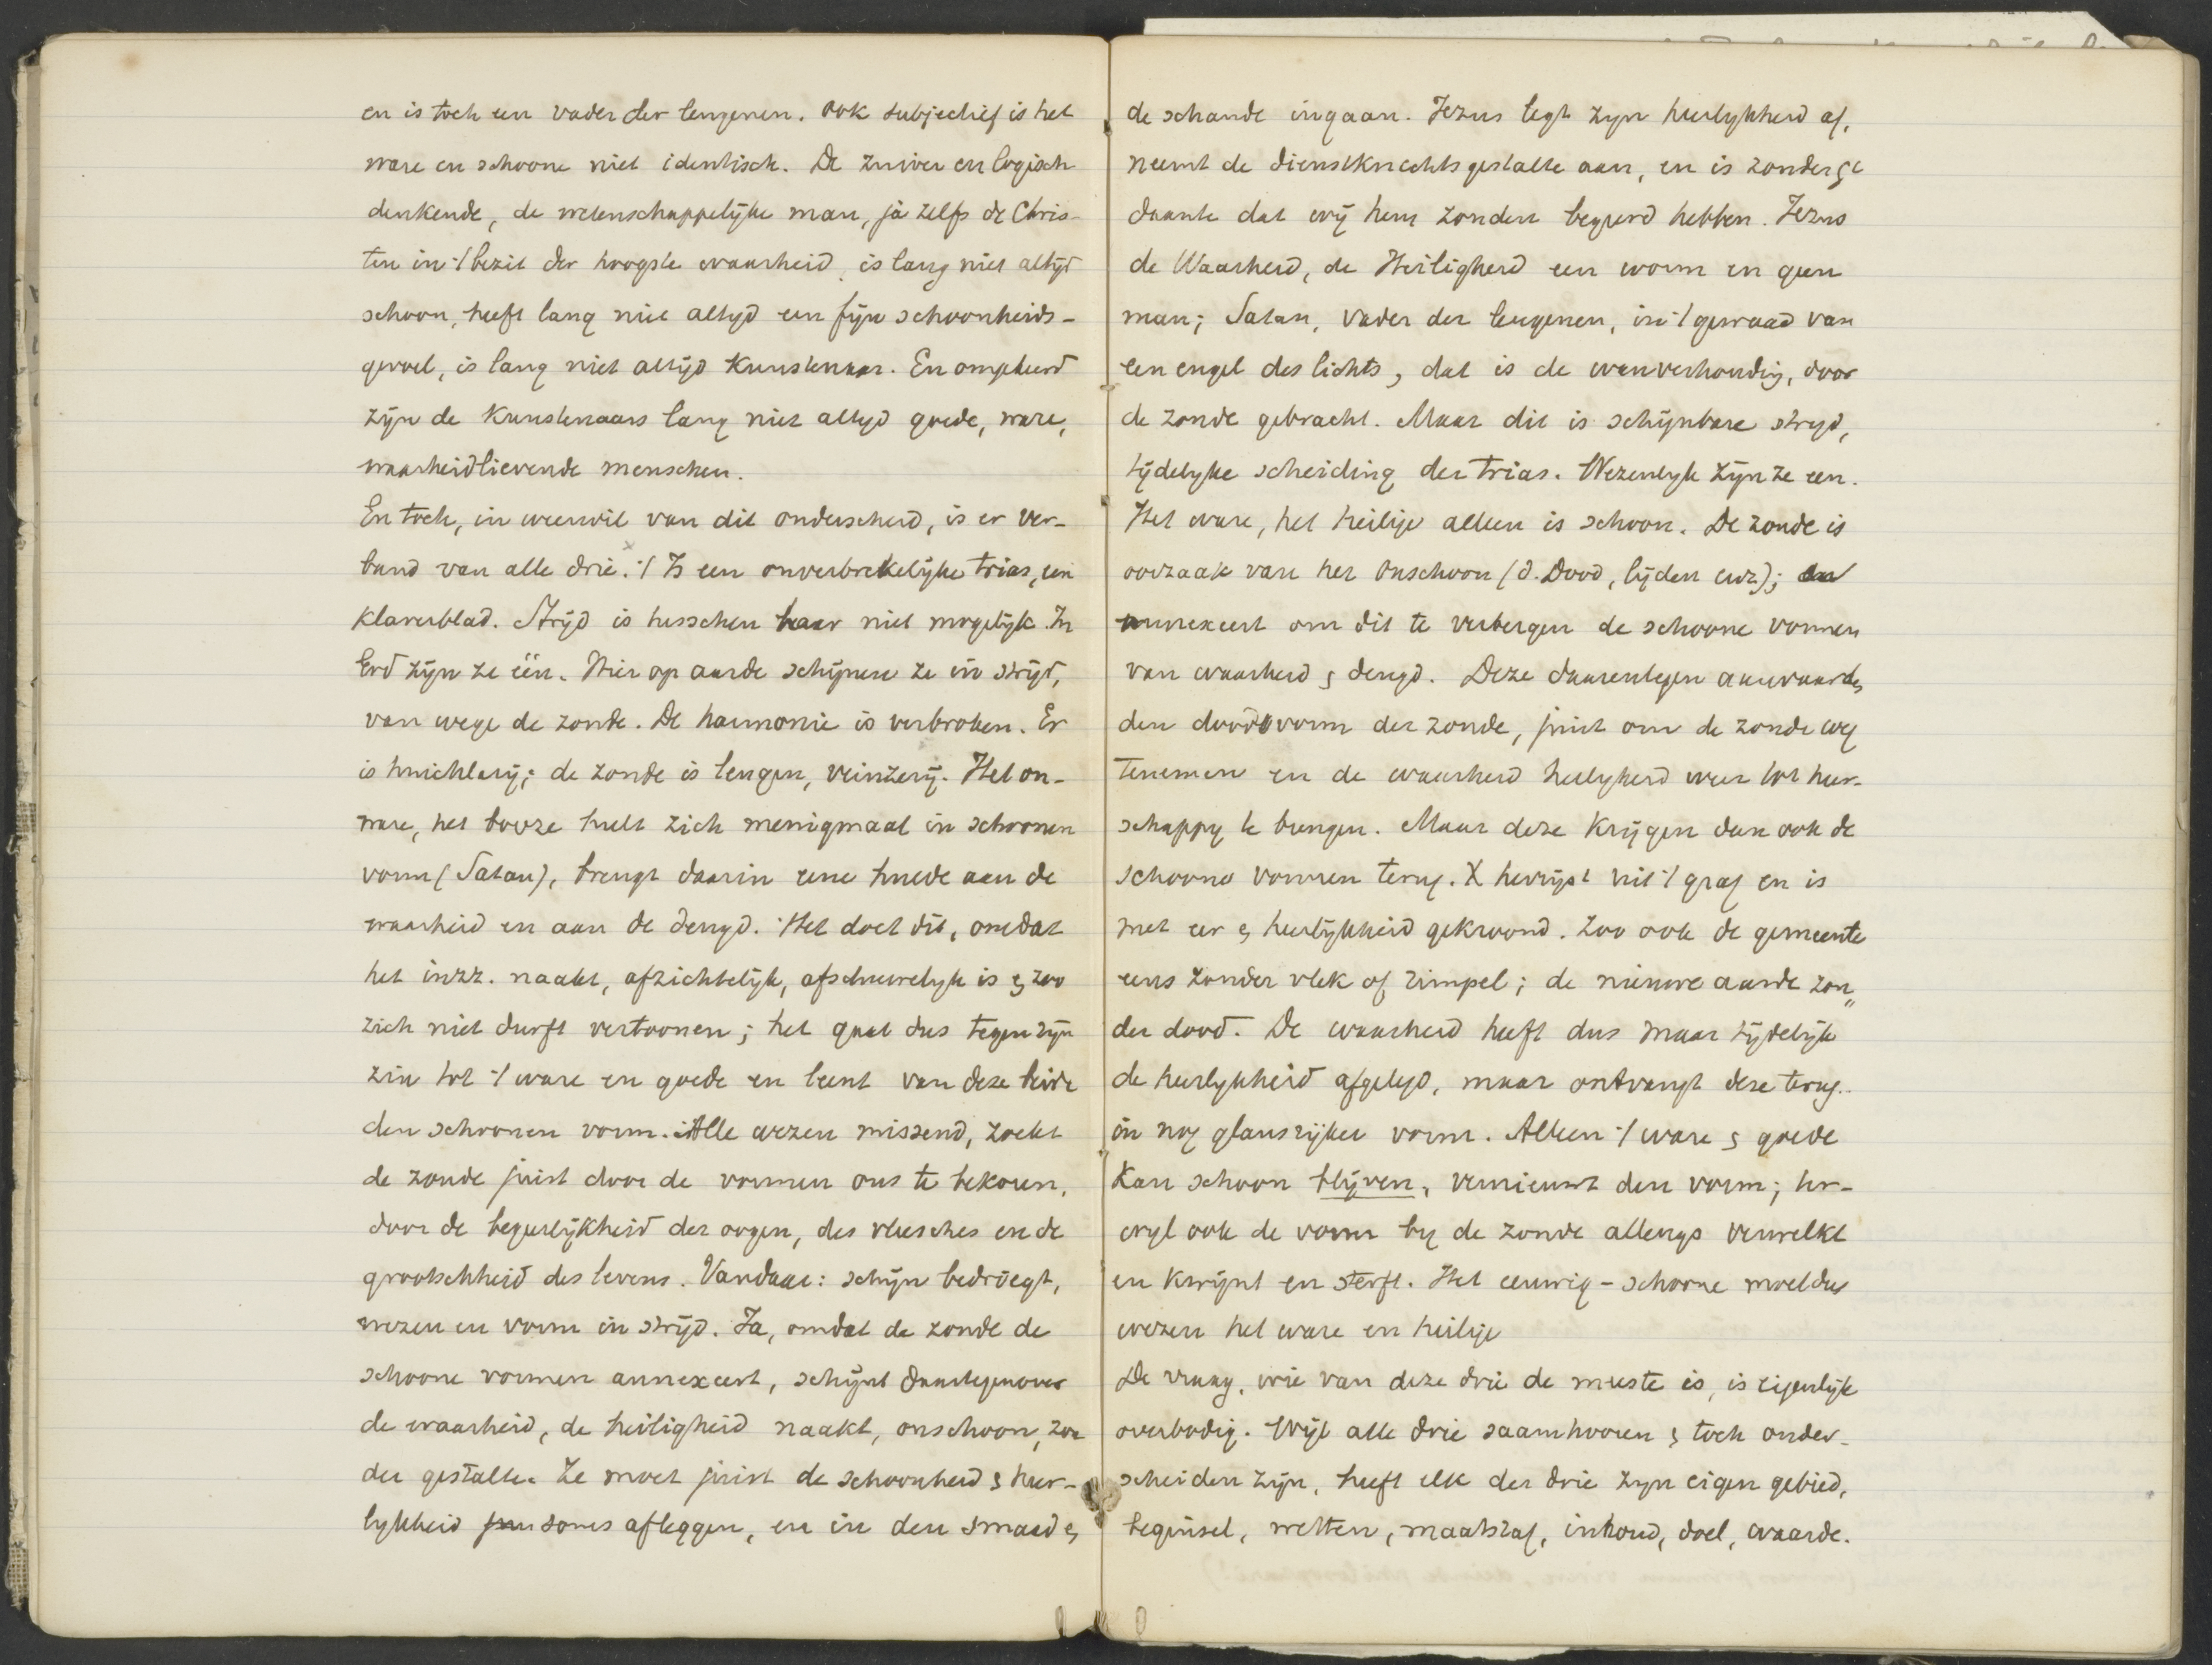 en is toch een vader der leugenen. Ook subjectief is het
ware en schoone niet identisch. De zuiver en logisch
denkende, de wetenschappelijke man, ja zelfs de Chris-
ten in 't bezit der hoogste waarheid, is lang niet altijd
schoon, heeft lang niet altyd een fijn schoonheids-
gevoel, is lang niet altijd Kunstenaar. En omgekeerd
zijn de Kunstenaars lang niet altyd goede, ware,
waarheidlievende menschen.
En toch, in weerwil van dit onderscheid, is er ver-
band van alle drie. 't Is een onverbrekelijke trias, een
Klaverblad. Strijd is tusschen haar niet mogelijk. In
God zijn ze één. Hier op aarde schijnen ze in strijd,
van wege de zonde. De harmonie is verbroken. Er
is huichlarij; de zonde is leugen, veinzerij. Het on-
ware, het booze hult zich menigmaal in schoonen
vorm (Satan), brengt daarin eene hulde aan de
waarheid en aan de deugd. Het doet dit, omdat
het in zz. naakt, afzichtelijk, afschuwelyk is & zoo
zich niet durft vertoonen; het gaat dus tegen zijn
zin tot 't ware en goede en leent van deze beide
den schoonen vorm. Alle wezen missend, zoekt
de zonde juist door de vormen ons te bekoren,
door de begeerlijkheid der oogen, des vleesches en de
grootschheid des levens. Vandaar: schijn bedriegt,
wezen en vorm in strijd. Ja, omdat de zonde de
schoone vormen annexeert, schijnt daartegenover
de waarheid, de heiligheid naakt, onschoon, zon
der gestalte. Ze moet juist de schoonheid & heer-
lykheid soms afleggen, en in den smaad &
de schande ingaan. Jezus legt zyn heerlykheid af,
neemt de dienstknechtsgestalte aan, en is zonder ge
daante dat wij hem zouden begeerd hebben. Jezus
de Waarheid, de Heiligheid een worm en geen
man; Satan, vader der leugenen, in 't gewaad van
een engel des lichts, dat is de wanverhouding, door
de zonde gebracht. Maar dit is schijnbare stryd,
tijdelyke scheiding der trias. Wezenlyk zijn ze een.
Het ware, het heilige alleen is schoon. De zonde is
oorzaak van het onschoon (d. Dood, lijden enz);
annexeert om dit te verbergen de schoone vormen
van waarheid & deugd. Deze daarentegen aanvaarden
den doodsvorm der zonde, juist om de zonde weg
te nemen en de waarheid heiligheid weer tot heer-
schappy te brengen. Maar deze Krijgen dan ook de
schoone vormen terug. X herrijst uit 't graf en is
met eer & heerlijkheid gekroond. Zoo ook de gemeente
eens zonder vlek of rimpel; de nieuwe aarde zon"
der dood. De waarheid heeft dus maar tijdelijk
de heerlykheid afgelegd, maar ontvangt deze terug
in nog glansrijker vorm. Alleen 't ware & goede
Kan schoon blijven, vernieuwt den vorm; ter-
wyl ook de vorm by de zonde allengs verwelkt
en kwijnt en sterft. Het eeuwig-schoone moet dus
wezen het ware en heilige
De vraag, wie van deze drie de meeste is, is eigenlijk
overbodig. Wijl alle drie saamhooren & toch onder-
scheiden zijn, heeft elk der drie zyn eigen gebied,
beginsel, wetten, maatstaf, inhoud, doel, waarde.